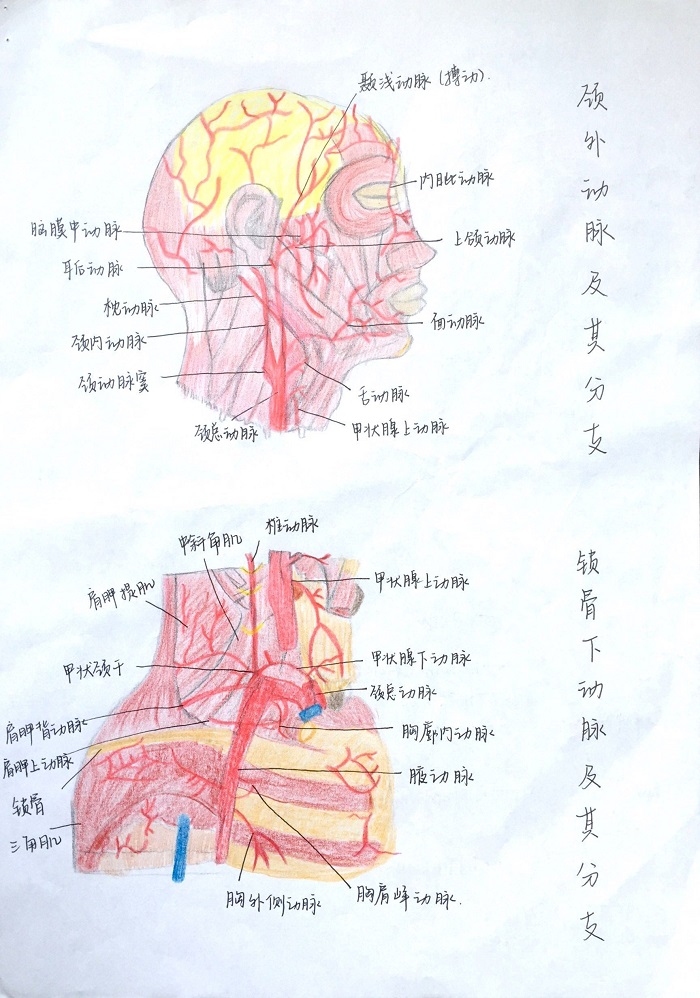 颈外动脉及其分支
颞浅动脉(搏动).
内眦动脉
脑膜中动脉
上颌动脉
耳后动脉
枕动脉
面动脉
颈内动脉
颈动脉窦
舌动脉
颈总动脉
甲状腺上动脉
锁骨下动脉及其分支
椎动脉
中斜角肌
甲状腺上动脉
肩胛提肌
甲状颈干
甲状腺下动脉
颈总动脉
肩胛背动脉
胸廓内动脉
肩胛上动脉
腋动脉
锁骨
三角肌
胸外侧动脉
胸肩峰动脉.